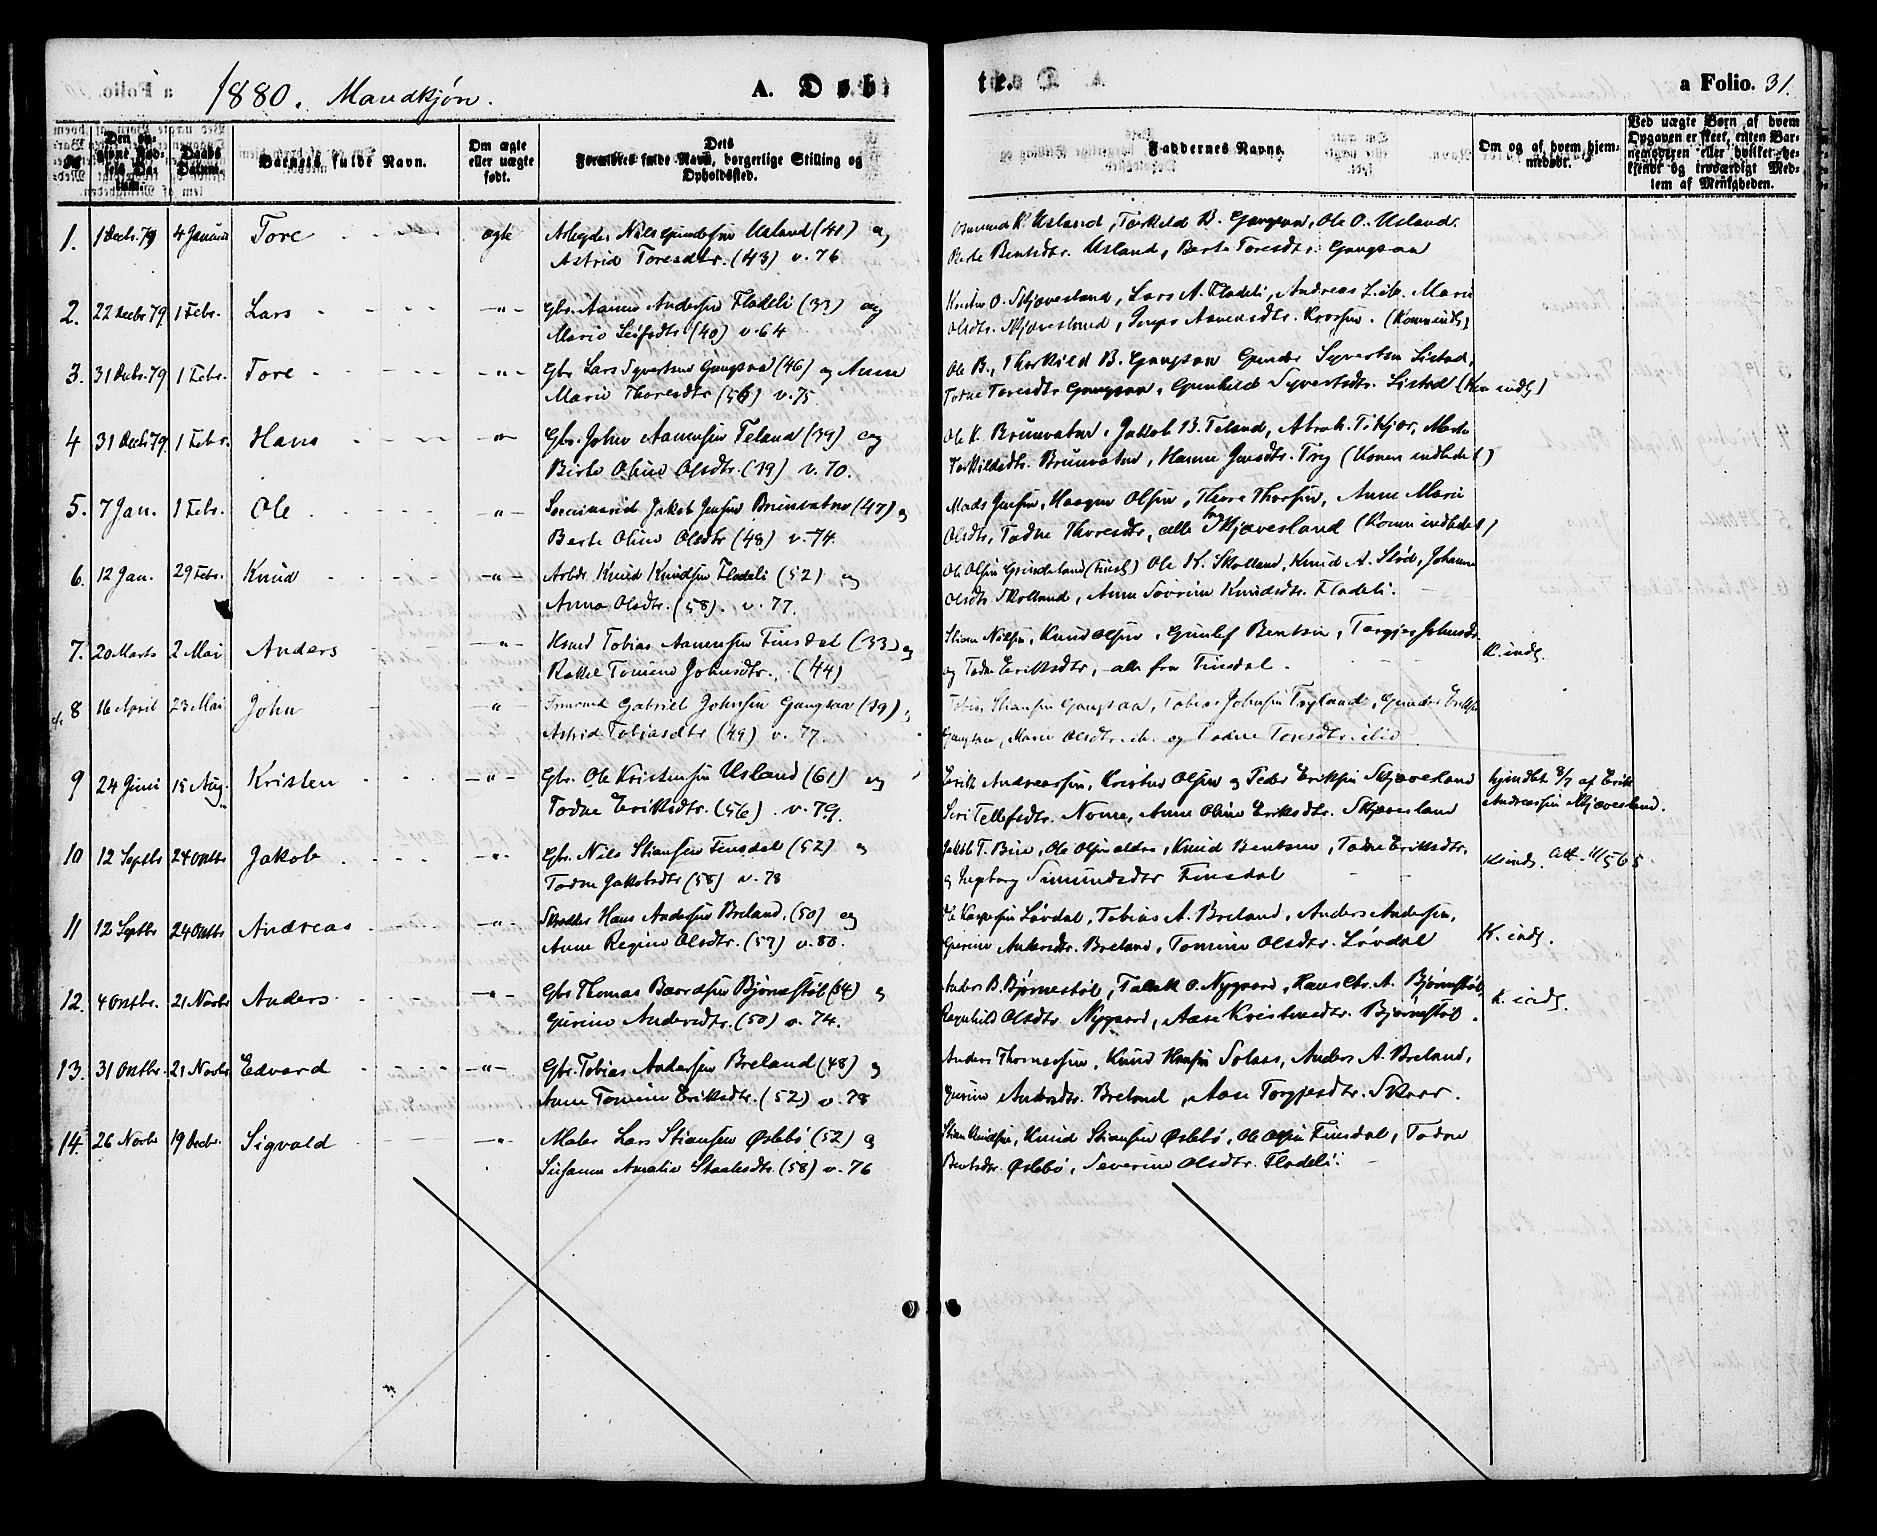 1880. Mandkjøn.
A. Døb
te.
a Folio. 31.
No
Den opgivne Fødsels Datum.
Daabs Datum.
Barnets fulde Navn.
Om ægte eller uægte født.
Dets Forældres fulde Navn, borgerlige Stilling og Opholdssted.
Faddernes Navne.
Om og af hvem hjemmedøbt.
Ved uægte Børn af hvem Opgaven er skeet, enten Barnemoderen eller hvilket bekjendt og troværdigt Medlem af Menigheden.
1. 1 Decbr. 79 4 Januar Tore ægte Arbeyder Nils Gundersen Usland (41) og
Astrid Toresdtr. (43) v. 76
Osmund K. Usland, Torkild B. Gangsaa, Ole O. Usland.
Berte Bentsdtr. Usland, Berte Toresdtr. Gangsaa
2. 22 Decbr 79 1 Febr. Lars -"- Gbr. Aanen Andersen Fladeli (33) og
Marie Leifsdtr. (40) v. 64
O. Skjævesland, Lars A. Fladeli, Andreas Marie
Olsdtr. Skjævesland, Aanensdtr. (Konen indl.)
3. 31 Decbr 79 1 Febr. Tore -"- Gbr. Lars Syvertsen Gangsaa (46) og Anne
Marie Thoresdtr (56) v. 75.
Ole B., Thorkild B. Gangsaa Gunder Syvertsen Listad,
Todne Toresdtr Gangsaa, Gunhild Syvertsdtr. Listad (Kon indl)
4 31 Decbr 79 1 Febr. Hans -"- Gbr. John Aanensen Teland (39) og
Berte Oline Olsdtr. (39) v. 70.
Ole K. Brunvatne, Jakob B. Teland, Abrah. T. Kjær, Marte
Torkildsdtr. Brunvatne, Hanne Jensdtr. Try (Konen indledet)
5. 7 Jan. 1 Febr. Ole -"- Jakob Jensen Brunvatne (47) og
Berte Oline Olsdtr (48) v. 74.
Mads Jensen, Haagen Olsen, Thore Thorsen, Anne Marie
Olsdtr, Todne Thoresdtr, alle fra Skjævesland (Konen indledet)
6. 12 Jan. 29 Febr. Knud -"- Arbdr. Knud Knudsen Fladeli (52) og
Anna Olsdtr. (58). v. 77.
Ole Olsen Grindeland (Finsl) Ole K. Skolland, Knud A. Stød, Johanne
Olsdtr. Skolland, Anne Severine Knudsdtr. Fladeli.
7. 20 Marts 2 Mai Anders -"- Husmd Tobias Aanensen Finsdal (33) og
Rakel Tomine Johnsdtr. (44)
Stian Nilsen, Knud Olsen, Gunlef Bentsen, Torgjer Johnsdtr
og Todne Eriksdtr, alle fra Finsdal.
K. indl.
8 16 April 23 Mai John " Gabriel Johnsen Gangsaa (39) og
Astrid Tobiasdtr (49) v. 77.
Tobias Stiansen Gangsaa, Tobias Johnsen Tryland, Gunder Eriksen
Gangsaa, Marie Olsdtr. ib. og Todne Toresdtr. ibid
9 24 Juni 15 Aug. Kristen -"- Gbr. Ole Kristensen Usland (61) og
Todne Eriksdtr. (56). v. 79.
Erik Andreassen, Kristen Olsen og Peder Eriksen Skjævesland
Siri Tellefsdtr. Nome, Anne Oline Eriksdtr. Skjævesland
hjmdbt 8/7 af Erik
Andreassen Skjævesland.
10 12 Septbr 24 Octbr Jakob -"- Gbr. Nils Stiansen Finsdal (52) og
Todne Jakobsdtr (58) v. 78
Jakob T. Bue, Ole Olsen ældre, Knud Bentsen, Todne Eriksdtr.
og Ingeborg Simundsdtr Finsdal
K indl. Att. 11/5 65
11 12 Septbr 24 Octbr Andreas -"- Skrædder Hans Andersen Breland, (50) og
Anne Regine Olsdtr. (57) v. 80.
Ole Kaspersen Løvdal, Tobias A. Breland, Anders Andersen,
Gurine Andersdtr. Breland, Tomine Olsdtr. Løvdal
K. indl.
12. 4 Octbr. 21 Novbr Anders -"- Gbr Thomas Baardsen Bjørnestøl (54) og
Gurine Andersdtr. (50) v. 74.
Anders B. Bjørnestøl, Tallak O. Nygaard, Hans Chr. A. Bjørnestøl,
Ragnhild Olsdtr. Nygaard, Aase Kristensdtr. Bjørnestøl.
K. indl.
13. 31 Octbr. 21 Novbr Edvard -"- Gbr. Tobias Andersen Breland (48) og
Anne Tomine Eriksdtr. (52) v. 78
Anders Thomassen, Knud Hansen Solaas, Anders A. Breland,
Gurine Andersdtr. Breland, Aase Torgjesdtr. Skaar.
14. 26 Novbr 19 Decbr. Sigvald -"- Maler Lars Stiansen Øslebø (52) og
Susanne Amalie Staalesdtr. (58) v. 76
Stian Knudsen, Knud Stiansen Øslebø, Ole Olsen Finsdal, Todne
Bentsdtr. Øslebø, Severine Olsdtr. Fladeli.